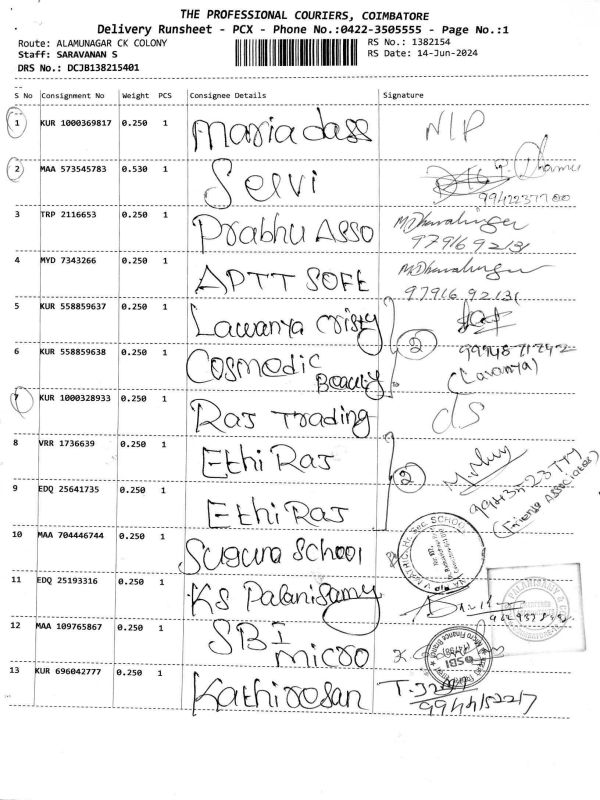 THE PROFESSIONAL COURIERS, COIMBATORE
Delivery Runsheet - PCX - Phone No.:0422-3505555 - Page No.:1
Route: ALAMUNAGAR CK COLONY
RS No.: 1382154
Staff: SARAVANAN S
RS Date: 14-Jun-2024
DRS No.: DCJB138215401
S No Consignment No Weight PCS Consignee Details Signature
1 KUR 1000369817 0.250 1 Maria dass NIP
2 MAA 573545783 0.530 1 Selvi
3 TRP 2116653 0.250 1 Prabhu ASSO
97916 92131
4 MYD 7343266 0.250 1 APTT SOFt
97916 92131
5 KUR 558859637 0.250 1 Lawanya cristy
6 KUR 558859638 0.250 1 Cosmedic Beauty 2
(Lavanya)
7 KUR 1000328933 0.250 1 Raj Trading ds
8 VRR 1736639 0.250 1 Ethi Raj
9 EDQ 25641735 0.250 1 Ethi Raj 2
10 MAA 704446744 0.250 1 Suguna School
11 EDQ 25193316 0.250 1 KS Palanisamy
12 MAA 109765867 0.250 1 SBI micro
SBI
13 KUR 696042777 0.250 1 Kathiresan